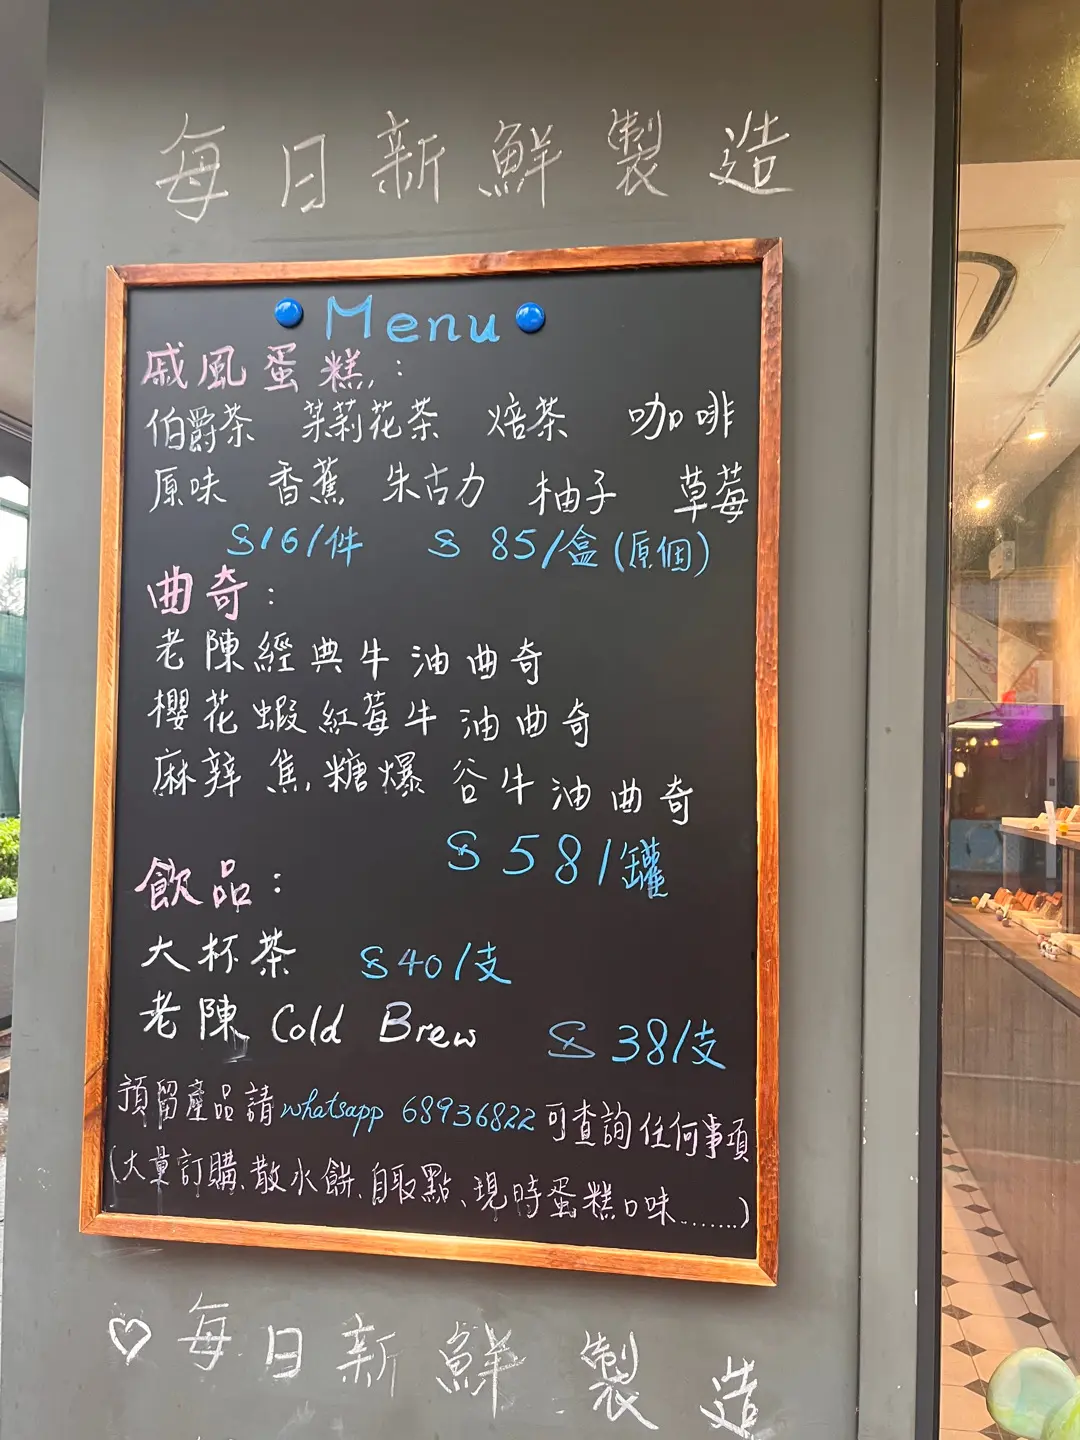 每日新鮮製造
Menu
戚風蛋糕:
伯爵茶 茉莉花茶 焙茶 咖啡
原味 香蕉 朱古力 柚子 草莓
$16/件 $85/盒(原個)
曲奇:
老陳經典牛油曲奇
櫻花蝦紅莓牛油曲奇
麻辣焦糖爆谷牛油曲奇
$58/罐
飲品:
大杯茶 $40/支
老陳 Cold Brew $38/支
預留產品請whatsapp 68936822可查詢任何事項
(大量訂購、散水餅、自取點、現時蛋糕口味.......)
♡每日新鮮製造